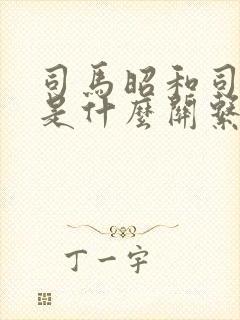 司馬昭和司
是什麼關繫
丁一宇